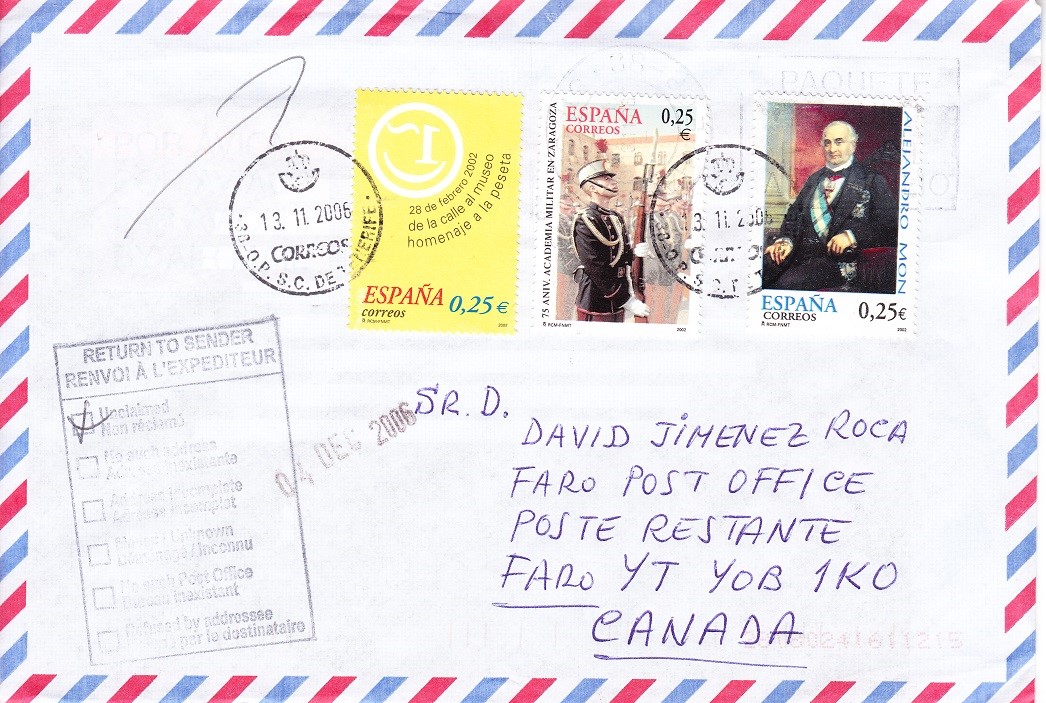 PAQUETE
28 de febrero 2002
de la calle al museo
homenaje a la peseta
ESPAÑA 0,25€
correos
RCM-FNMT 2002
75 ANIV. ACADEMIA MILITAR EN ZARAGOZA
ESPAÑA 0,25 €
CORREOS
RCM-FNMT 2002
ALEJANDRO MON
ESPAÑA 0,25€
CORREOS
RCM-FNMT 2002
13.11.2006
CORREOS
S.C. DE
13.11.2006
RETURN TO SENDER
RENVOI À L'EXPEDITEUR
Unclaimed
Non réclamé
No such address
Adresse incomplete
Unknown
Inconnu
No such Post Office
Bureau inexistant
Refused by addressee
par le destinataire
04 DEC 2006
SR. D.
DAVID JIMENEZ ROCA
FARO POST OFFICE
POSTE RESTANTE
FARO YT YOB 1KO
CANADA